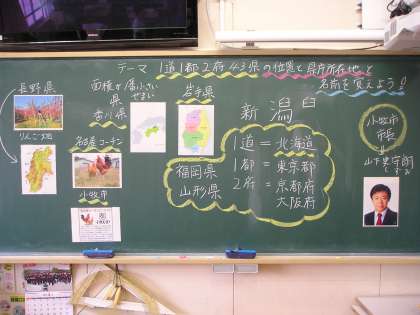 テーマ 1道1都2府43県の位置と県庁所在地と
名前を覚えよう!
長野県
りんご畑
面積が1番小さい
せまい
県
香川県
名古屋コーチン
小牧市
岩手県
新潟
福岡県
山形県
1道=北海道
1都=東京都
2府=京都府
大阪府
小牧市
市長